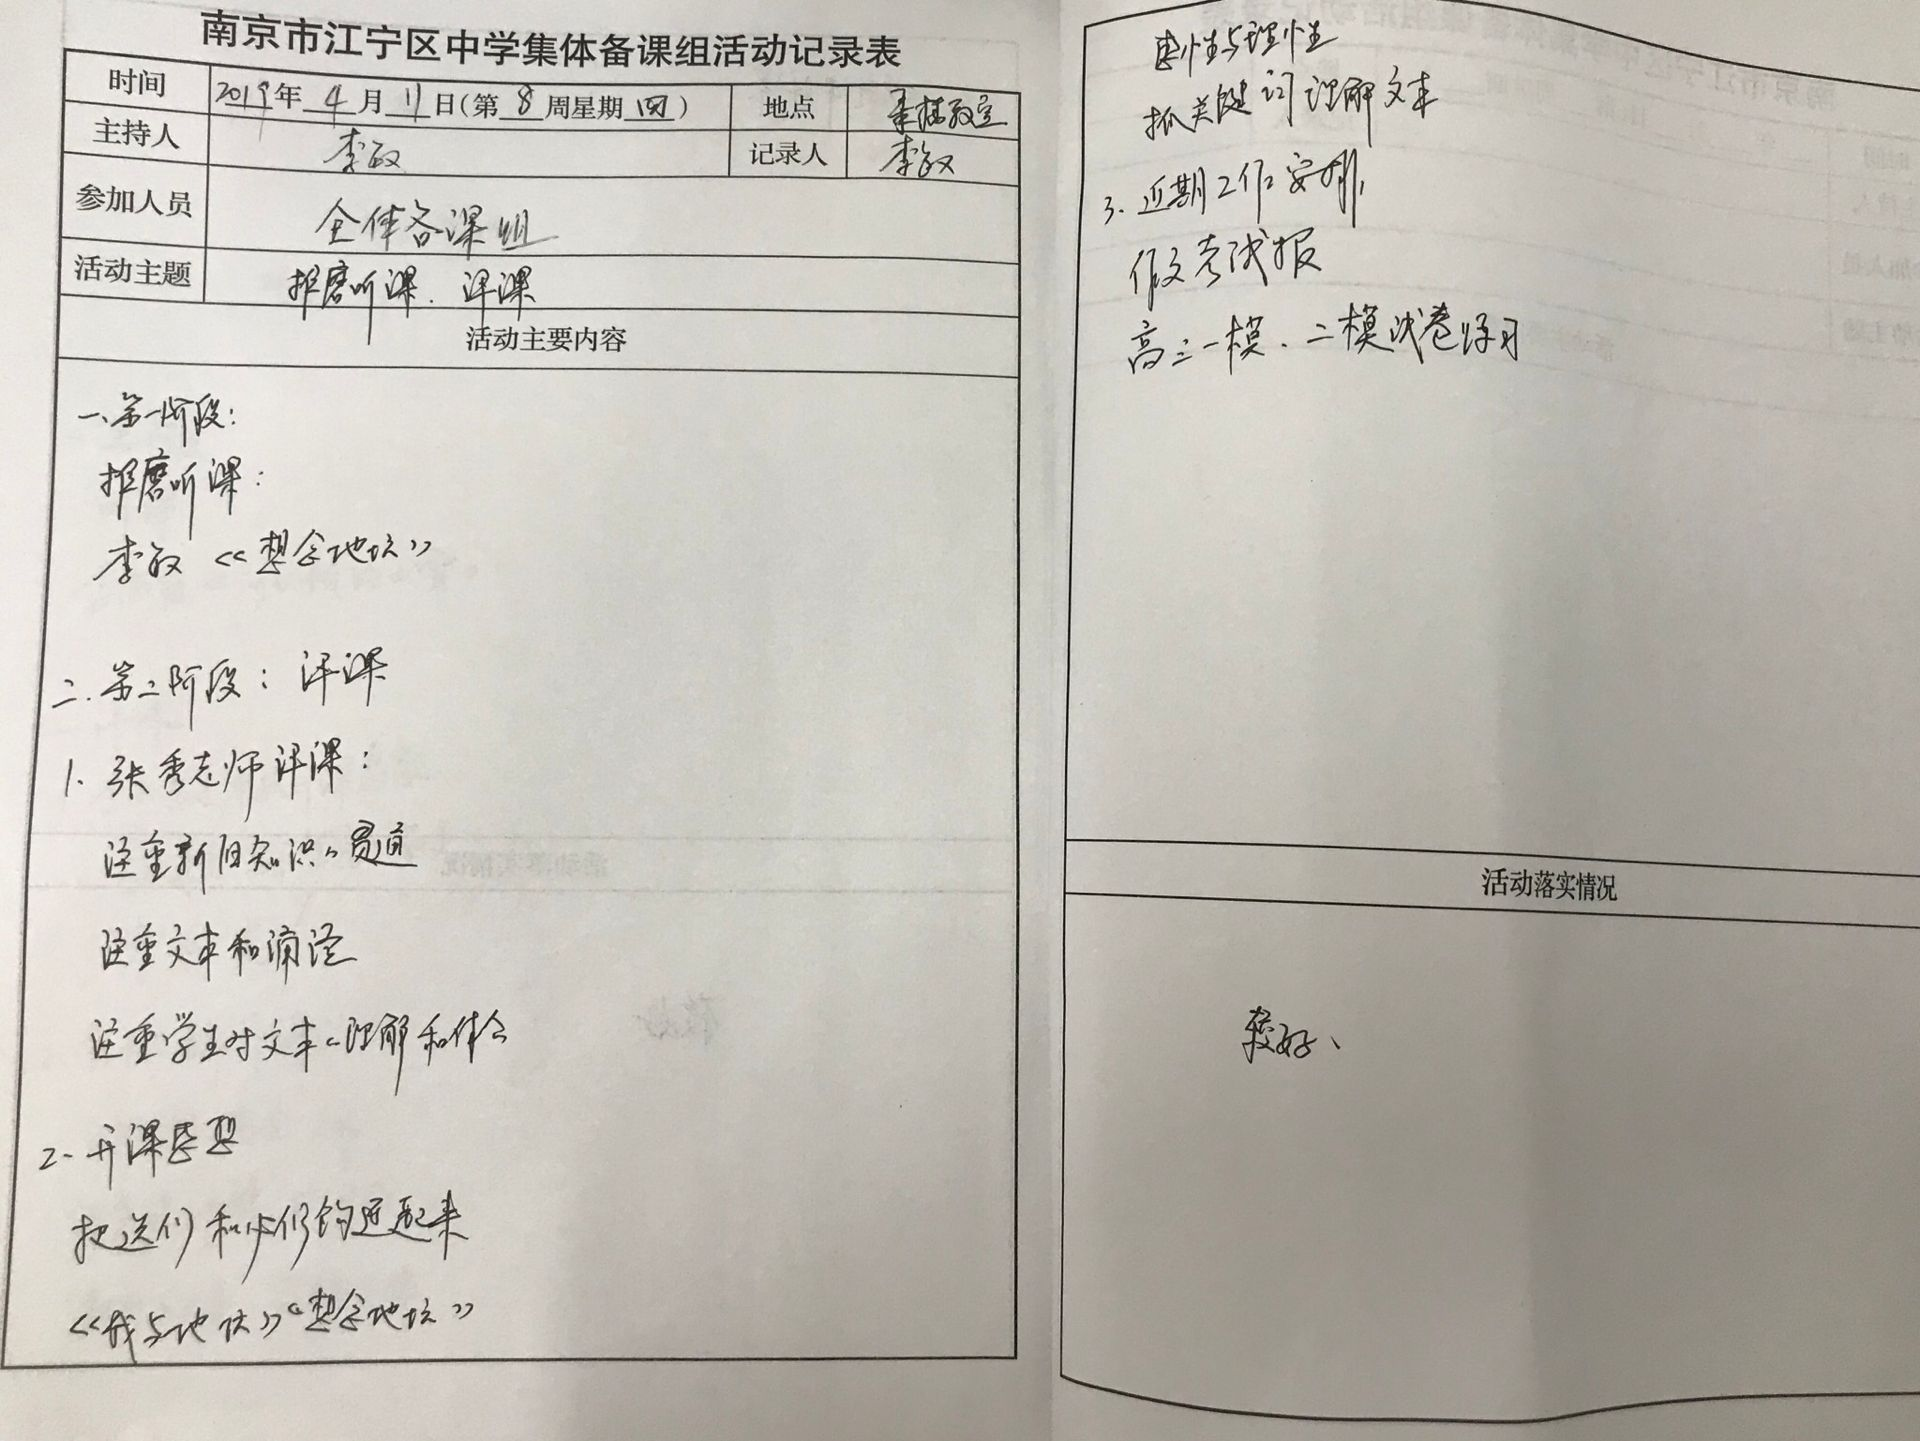 南京市江宁区中学集体备课组活动记录表
时间 2019年 4 月 11 日(第 8 周星期 四 ) 地点 录播教室
主持人 李敏 记录人 李敏
参加人员 全体备课组
活动主题 推磨听课、评课
活动主要内容
一、第一阶段:
推磨听课:
李敏《想念地坛》
二、第二阶段: 评课
1、张秀志师评课:
注重新旧知识的贯通
注重文本和诵读
注重学生对文本的理解和体会
2、开课思想
把 们和 们 起来
《我与地坛》《想念地坛》
感性与理性
抓关键词理解文本
3、近期工作安排
作文考试报
高三一模、二模试卷练习
活动落实情况
较好、